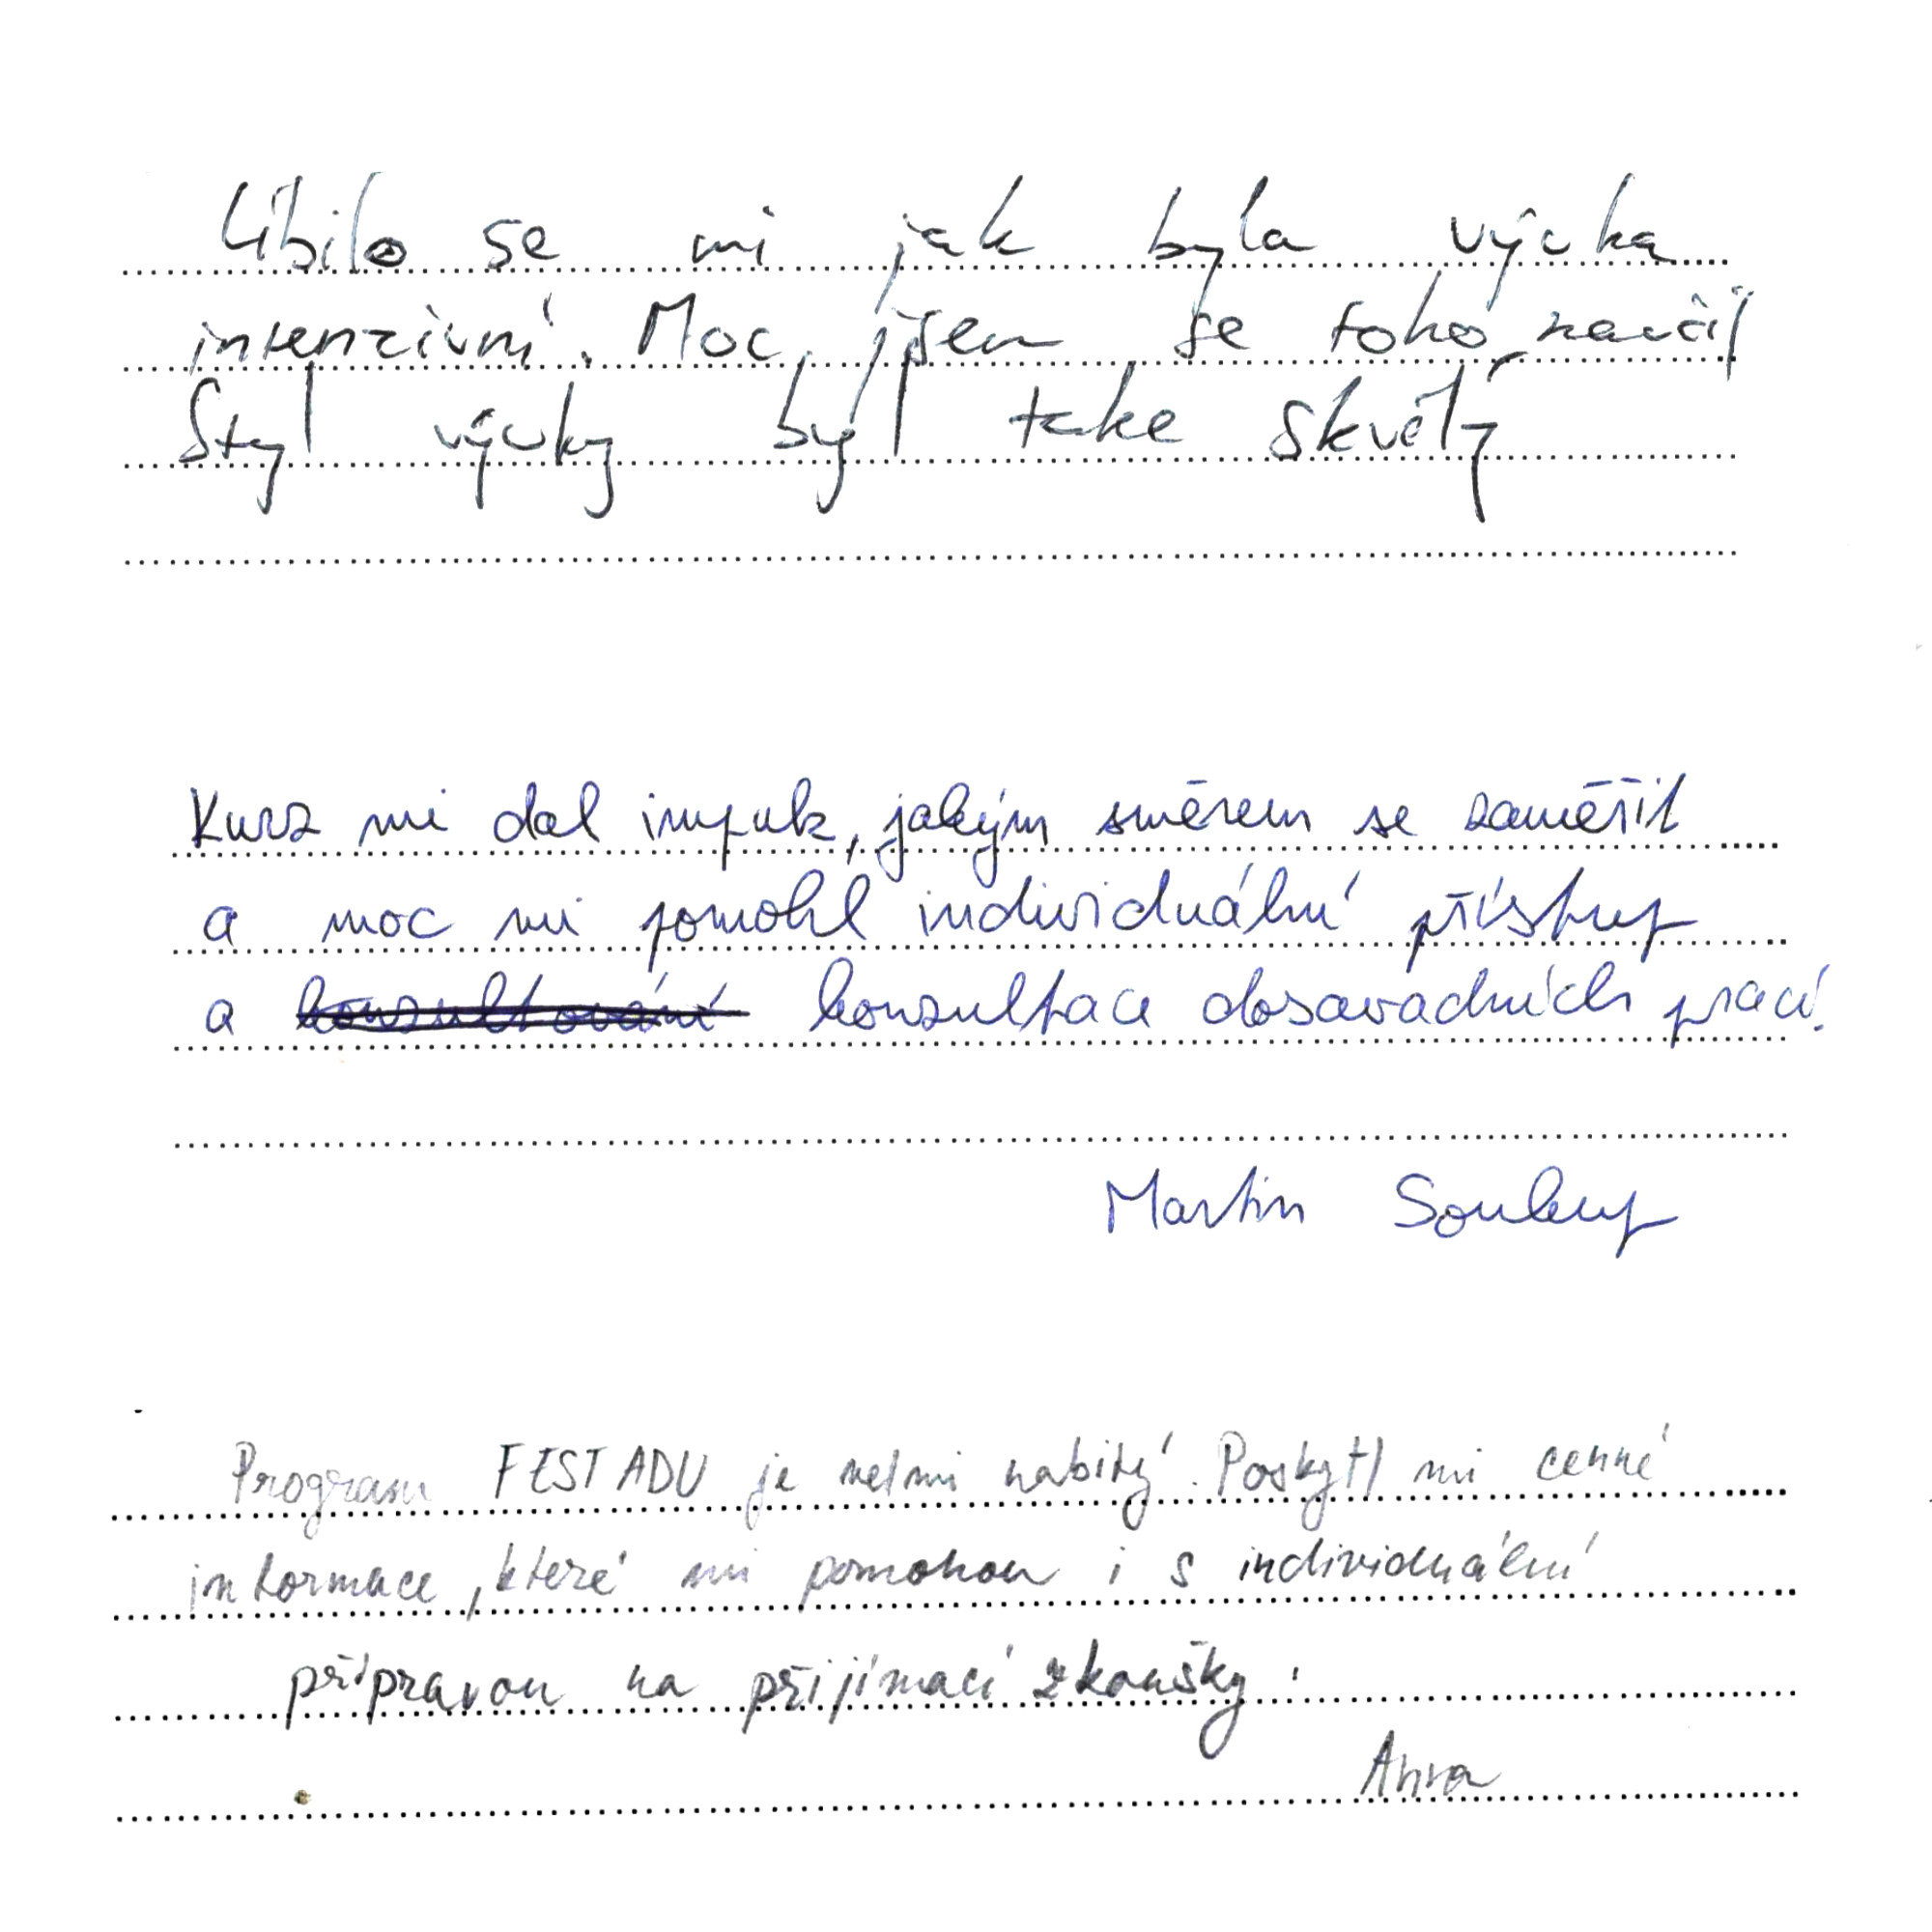 Líbilo se mi jak byla výuka
intenzivní. Moc jsem se toho naučil
Styl výuky byl take skvělý
Kurz mi dal impulz, jakým směrem se zaměřit
a moc mi pomohl individuální přístup
a konzultování konzultace dosavadních prací.
Martin Soukup
Program FESTADU je velmi nabitý. Poskytl mi cenné
informace, které mi pomohou i s individuální
přípravou na přijímací zkoušky.
Anna